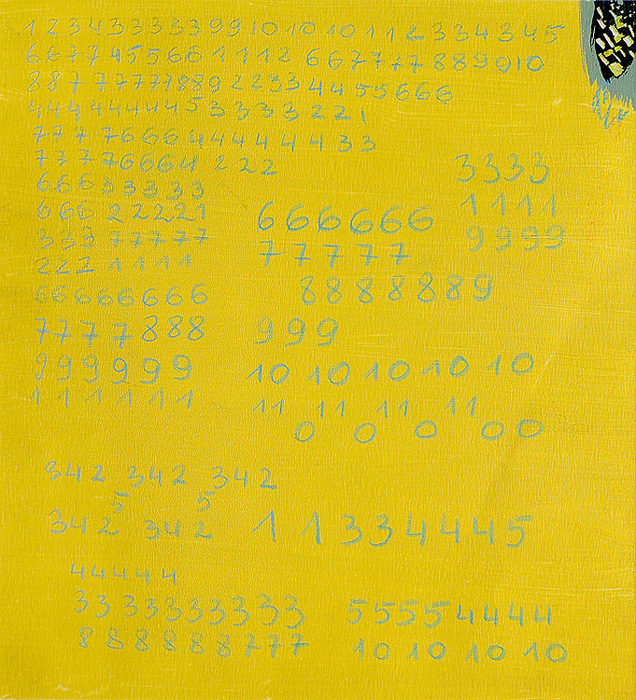 1 2 3 4 3 3 3 3 3 9 9 10 10 10 1 1 2 3 3 4 3 4 5
6 6 7 7 4 5 5 6 8 1 1 1 2 6 6 7 7 7 7 8 8 9 0 10
8 8 7 7 7 7 7 7 8 8 9 2 2 3 3 4 4 5 5 6 6 6
4 4 4 4 4 4 4 4 5 3 3 3 3 2 2 1
7 7 7 7 6 6 6 4 4 4 4 4 4 3 3
7 7 7 7 6 6 6 4 2 2 2
6 6 6 3 3 3 3 3
6 6 6 2 2 2 2 1
3 3 3 7 7 7 7 7
2 2 1 1 1 1 1
6 6 6 6 6 6 6 6
7 7 7 7 8 8 8
9 9 9 9 9 9
1 1 1 1 1 1
3 3 3 3
1 1 1 1
9 9 9 9
6 6 6 6 6 6
7 7 7 7 7
8 8 8 8 8 8 9
9 9 9
10 10 10 10 10
11 11 11 11
0 0 0 0 0
342 342 342
5 5
342 342
1 1 3 3 4 4 4 5
4 4 4 4 4
3 3 3 3 3 3 3 3 3
8 8 8 8 8 8 7 7 7
5 5 5 5 4 4 4 4
10 10 10 10